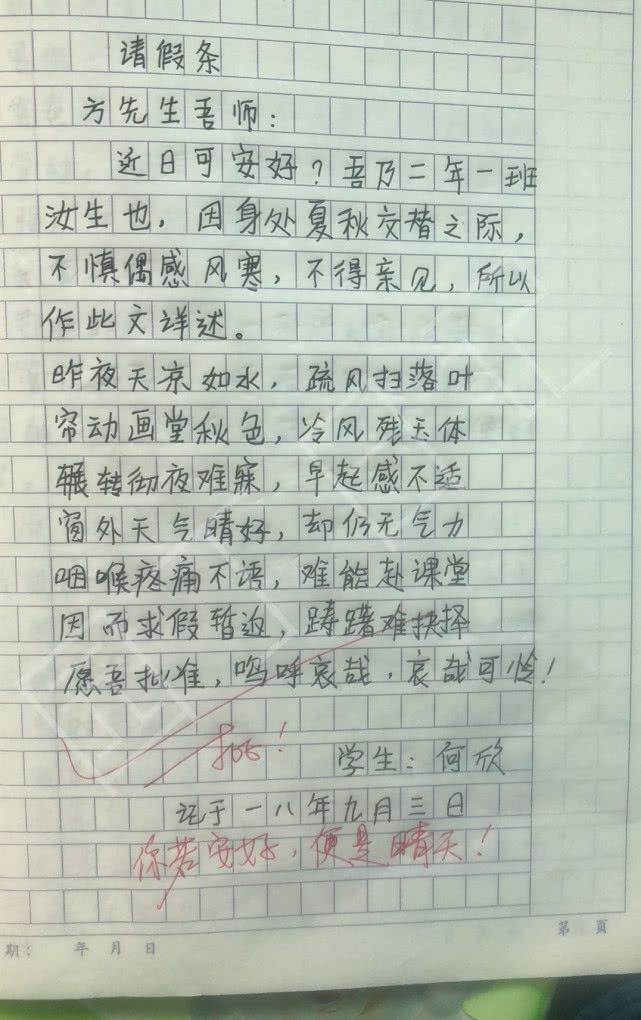 请假条
方先生吾师：
近日可安好？吾乃二年一班
汝生也，因身处夏秋交替之际，
不慎偶感风寒，不得亲见，所以
作此文详述。
昨夜天凉如水，疏风扫落叶
帘动画堂秋色，冷风残玉体
辗转彻夜难寐，早起感不适
窗外天气晴好，却仍无气力
咽喉疼痛不语，难能赴课堂
因而求假暂返，踌躇难抉择
愿吾批准，呜呼哀哉，哀哉可怜！
批！
学生：何欣
记于一八年九月三日
你若安好，便是晴天！
第 页
期： 年 月 日